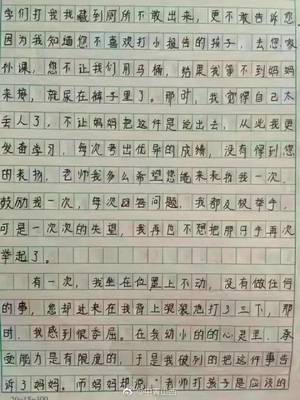 学们打我我藏到厕所不敢出来，更不敢告诉您
因为我知道您不喜欢打小报告的孩子，去您家
补课，您不让我们用马桶，结果我等不到妈妈
来接，就尿在裤子里了。那时，我觉得自己太
丢人了，不让妈妈把这件是说出去，从此我更
发奋学习，每次考出优异的成绩，没有得到您
的表扬，老师我多么希望您能来表扬我一次，
鼓励我一次，每次回答问题，我都积极举手，
可是一次次的失望，我再也不想把那只手再次
举起了。
有一次，我坐在位置上不动，没有做任何
的事，您却过来在我背上狠狠地打了三下，那
时，我感到很委屈。在我幼小的的心灵里，承
受能力是有限度的，于是我破列的把这件事告
诉了妈妈。而妈妈提说："老师打孩子是应该的
20×15=300
@中青山西